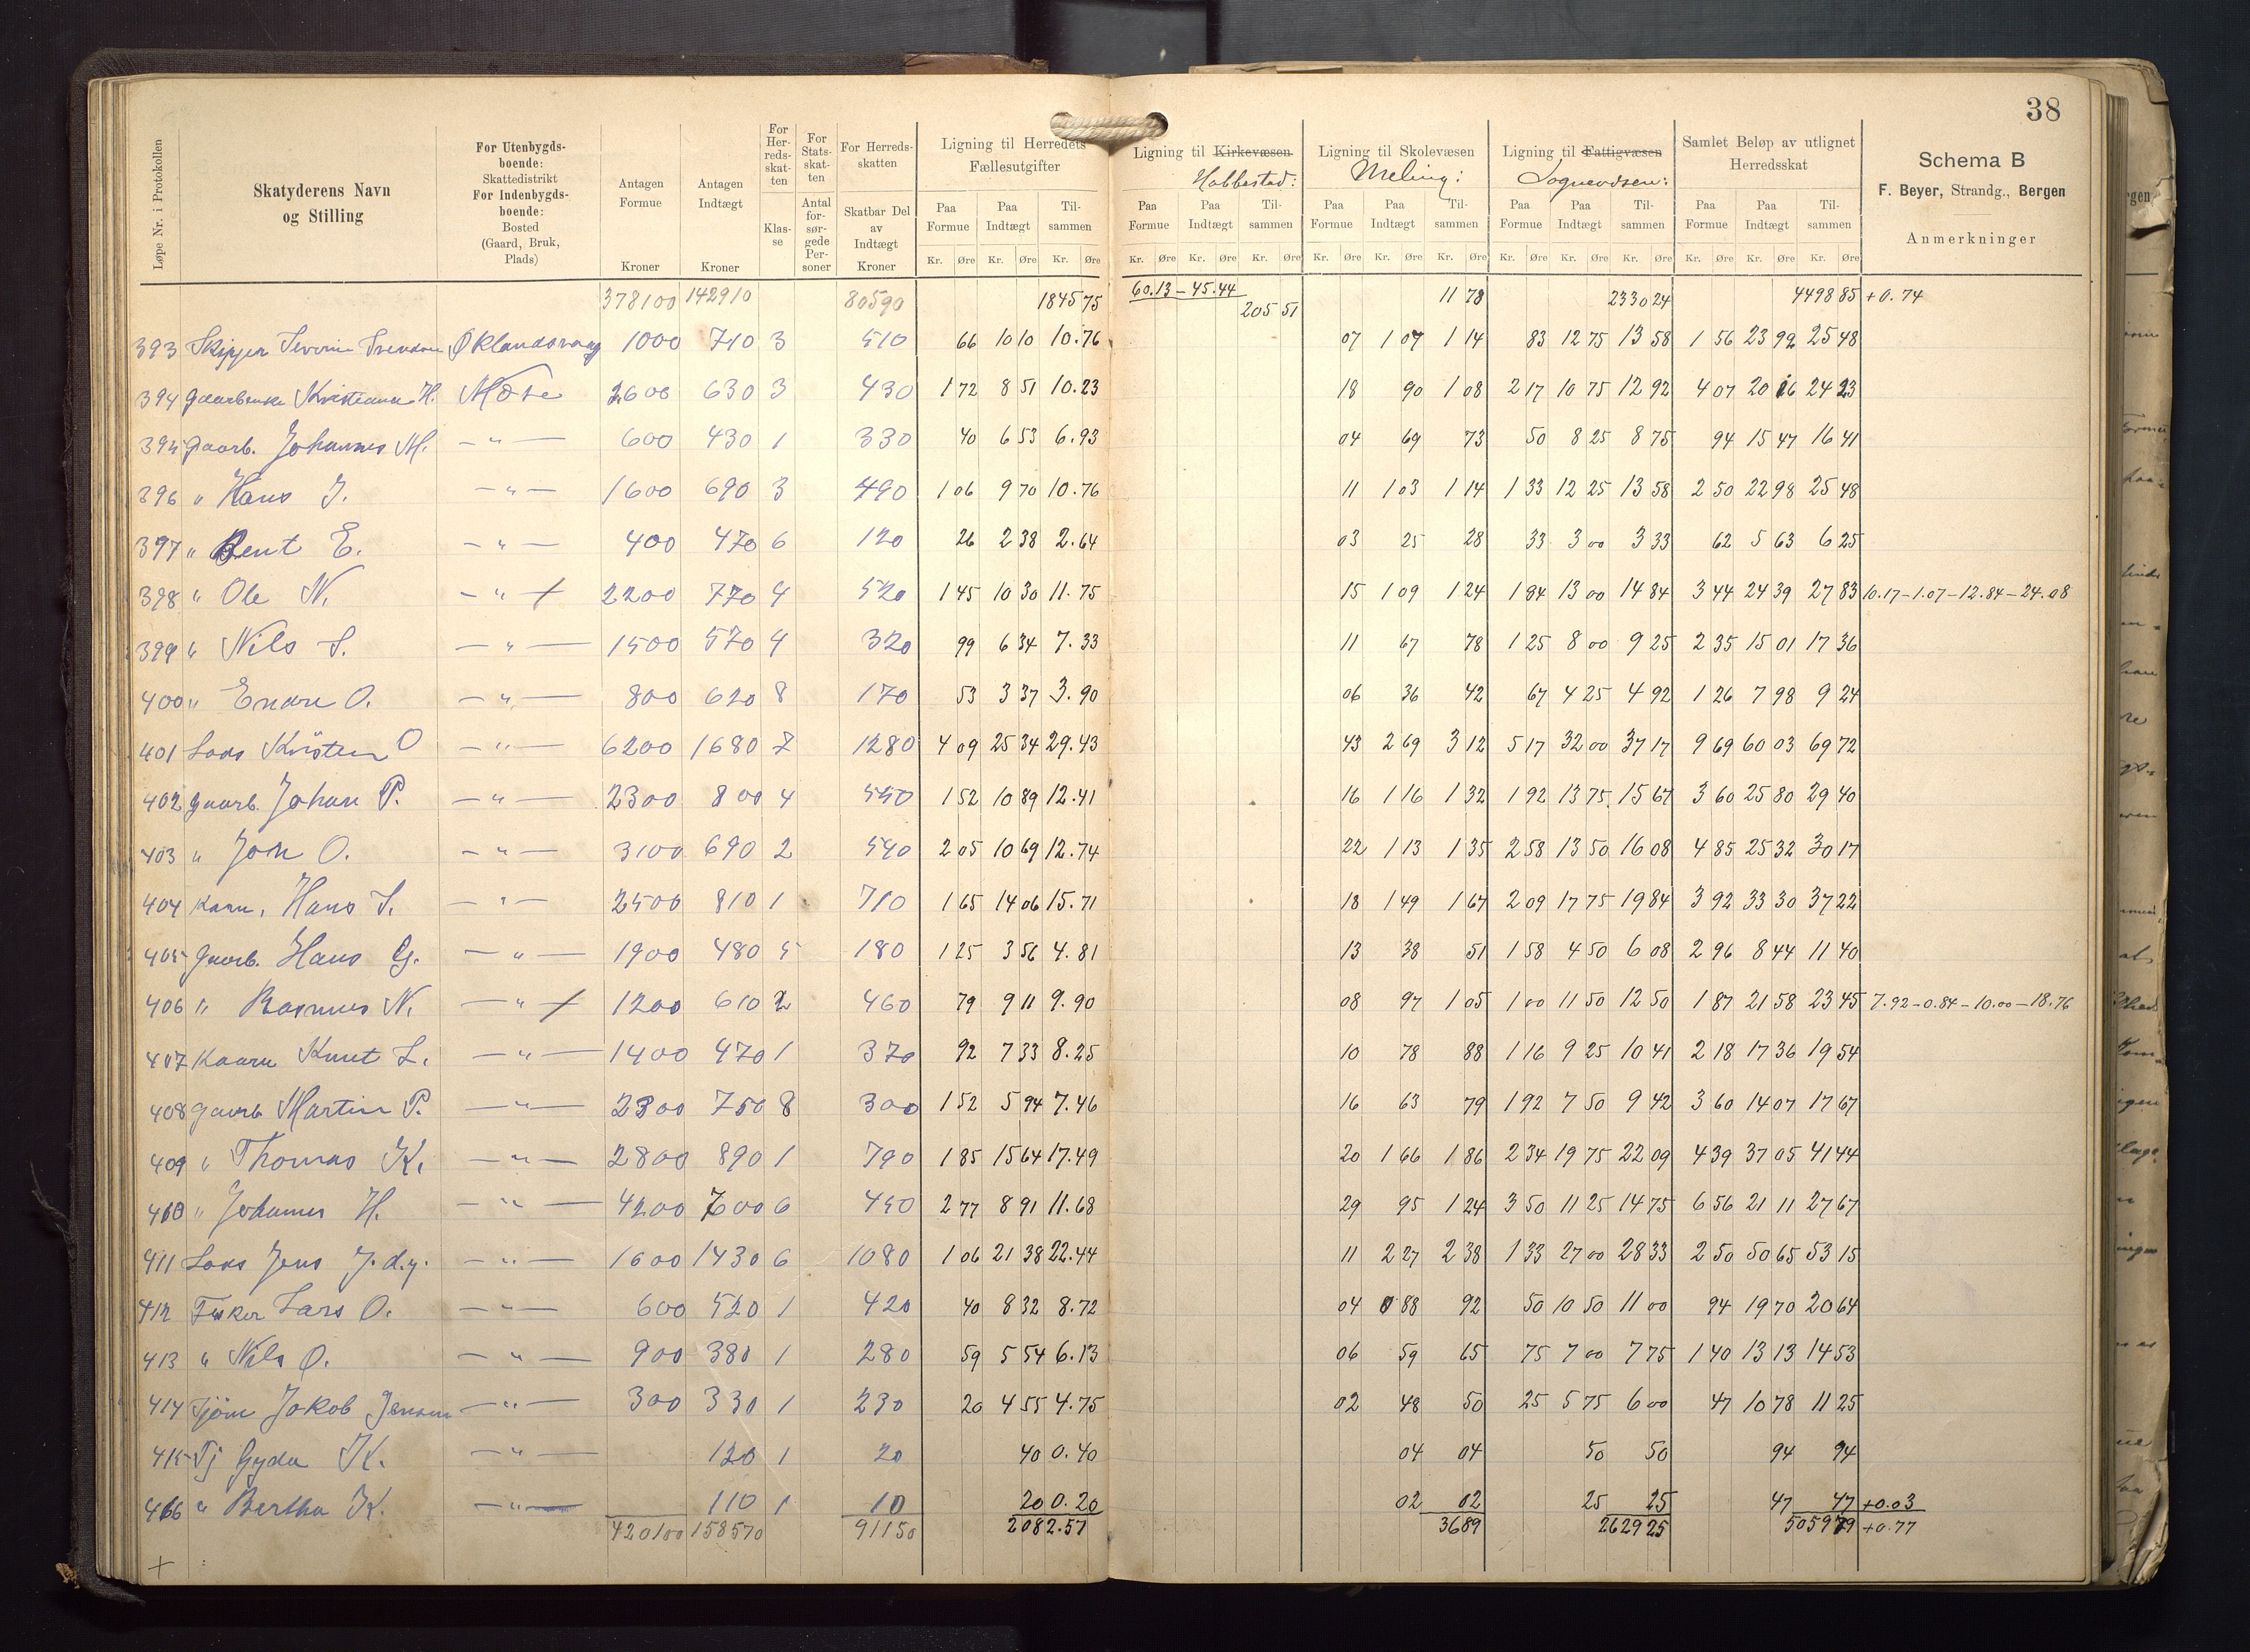 38
Løpe Nr. i Protokollen
Skatyderens Navn og Stilling
For Utenbygdsboende: Skattedistrikt For Indenbygdsboende: Bosted (Gaard, Bruk, Plads)
Antagen Formue Kroner
Antagen Indtægt Kroner
For Herredsskatten Klasse
For Statsskatten Antal forsørgede Personer
For Herredsskatten Skatbar Del av Indtægt Kroner
Ligning til Herredets Fællesutgifter
Ligning til Kirkevæsen Habbestad:
Ligning til Skolevæsen Meling:
Ligning til Fattigvæsen
Samlet Beløp av utlignet Herredsskat
Paa Formue Paa Indtægt Tilsammen Paa Formue Paa Indtægt Tilsammen Paa Formue Paa Indtægt Tilsammen Paa Formue Paa Indtægt Tilsammen Paa Formue Paa Indtægt Tilsammen
Kr. Øre Kr. Øre Kr. Øre Kr. Øre Kr. Øre Kr. Øre Kr. Øre Kr. Øre Kr. Øre Kr. Øre Kr. Øre Kr. Øre Kr. Øre Kr. Øre Kr. Øre
Schema B
F. Beyer, Strandg., Bergen
Anmerkninger
378100 142910 80590 1845 75 60.13 - 45.44 205 51 11 78 2330 24 4498 85 +0.74
393 Skipper Severin Svendsen Øklandsvaag 1000 710 3 510 66 10 10 10.76 07 1 07 1 14 83 12 75 13 58 1 56 23 92 25 48
394 Kristiane H. Møse 2600 630 3 430 1 72 8 51 10.23 18 90 1 08 2 17 10 75 12 92 4 07 20 16 24 23
395 gaarb. Johannes M. — " — 600 430 1 330 40 6 53 6.93 04 69 73 50 8 25 8 75 94 15 47 16 41
396 " Hans J. — " — 1600 690 3 490 1 06 9 70 10.76 11 1 03 1 14 1 33 12 25 13 58 2 50 22 98 25 48
397 " Bent E. — " — 400 470 6 120 26 2 38 2.64 03 25 28 33 3 00 3 33 62 5 63 6 25
398 " Ole N. — " + 2200 770 4 520 1 45 10 30 11.75 15 1 09 1 24 1 84 13 00 14 84 3 44 24 39 27 83 10.17-1.07-12.84-24.08
399 " Nils S. — " — 1500 570 4 320 99 6 34 7.33 11 67 78 1 25 8 00 9 25 2 35 15 01 17 36
400 " Endre O. — " — 800 620 8 170 53 3 37 3.90 06 36 42 67 4 25 4 92 1 26 7 98 9 24
401 Lods Kristen O — " — 6200 1680 7 1280 4 09 25 34 29.43 43 2 69 3 12 5 17 32 00 37 17 9 69 60 03 69 72
402 gaarb. Johan P. — " — 2300 800 4 550 1 52 10 89 12.41 16 1 16 1 32 1 92 13 75 15 67 3 60 25 80 29 40
403 " Jon O. — " — 3100 690 2 540 2 05 10 69 12.74 22 1 13 1 35 2 58 13 50 16 08 4 85 25 32 30 17
404 Kaarm. Hans S. — " — 2500 810 1 710 1 65 14 06 15.71 18 1 49 1 67 2 09 17 75 19 84 3 92 33 30 37 22
405 gaarb. Hans G. — " — 1900 480 5 180 1 25 3 56 4.81 13 38 51 1 58 4 50 6 08 2 96 8 44 11 40
406 " Rasmus N. — " + 1200 610 2 460 79 9 11 9.90 08 97 1 05 1 00 11 50 12 50 1 87 21 58 23 45 7.92-0.84-10.00-18.76
407 Kaarm Knut L. — " — 1400 470 1 370 92 7 33 8.25 10 78 88 1 16 9 25 10 41 2 18 17 36 19 54
408 gaarb Martin P. — " — 2300 750 8 300 1 52 5 94 7.46 16 63 79 1 92 7 50 9 42 3 60 14 07 17 67
409 " Thomas K. — " — 2800 890 1 790 1 85 15 64 17.49 20 1 66 1 86 2 34 19 75 22 09 4 39 37 05 41 44
410 " Johannes H. — " — 4200 700 6 450 2 77 8 91 11.68 29 95 1 24 3 50 11 25 14 75 6 56 21 11 27 67
411 Lods Jens J. d.y. — " — 1600 1430 6 1080 1 06 21 38 22.44 11 2 27 2 38 1 33 27 00 28 33 2 50 50 65 53 15
412 Fisker Lars O. — " — 600 520 1 420 40 8 32 8.72 04 0 88 92 50 10 50 11 00 94 19 70 20 64
413 " Nils O. — " — 900 380 1 280 59 5 54 6.13 06 59 65 75 7 00 7 75 1 40 13 13 14 53
414 Tjen Jakob Jensen — " — 300 330 1 230 20 4 55 4.75 02 48 50 25 5 75 6 00 47 10 78 11 25
415 Tj Gyda K. — " — 120 1 20 40 0.40 04 04 50 50 94 94
416 " Bertha K. — " — 110 1 10 20 0.20 02 02 25 25 47 47 +0.03
420100 158570 91150 2082.57 36 89 2629 25 5059 79 +0.77
+